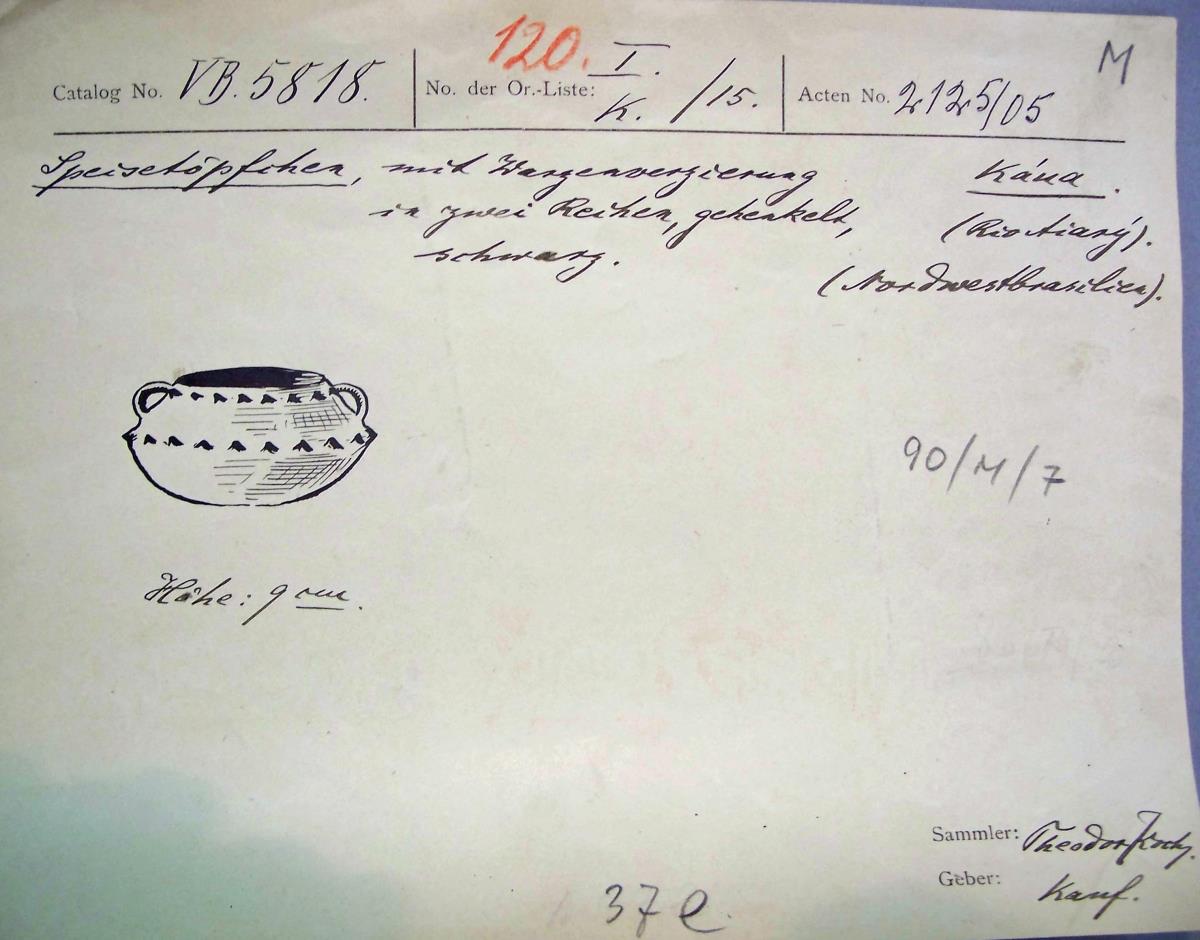 M
120.
Catalog No. VB. 5818. No. der Or.-Liste: I. K. /15. Acten No. 2125/05
Speisetöpfchen, mit Warzenverzierung Káua.
in zwei Reihen, gehenkelt, (Rio Aiarý).
schwarz. (Nordwestbrasilien).
90/M/7
Höhe: 9 cm.
Sammler: Theodor Koch.
Geber: Kauf.
37e